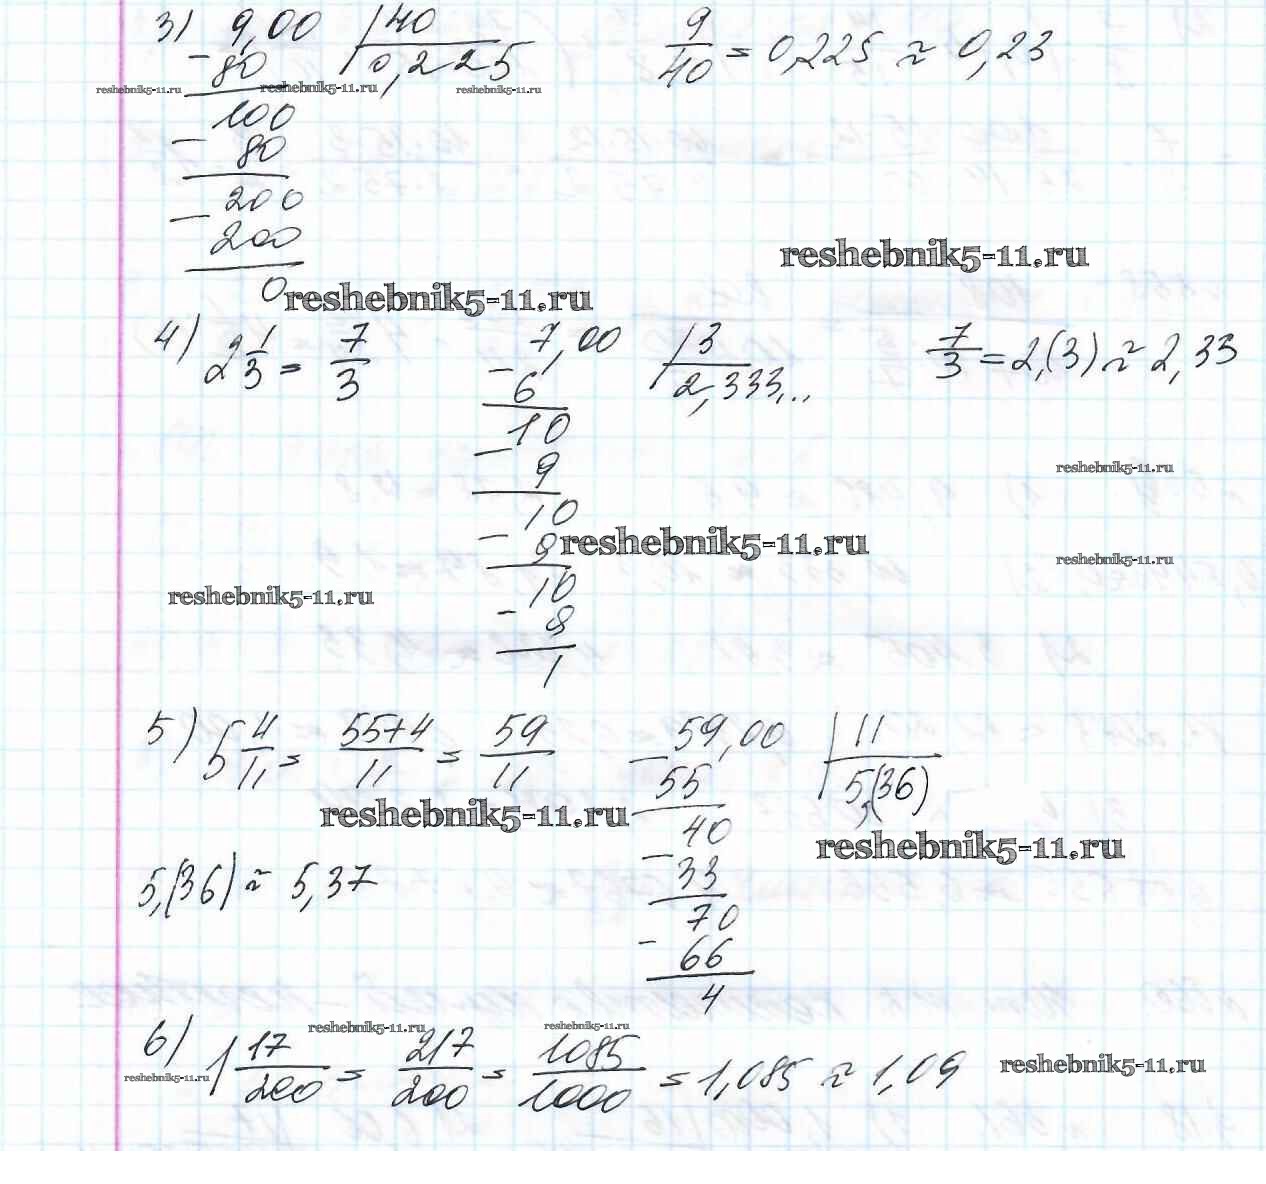 3) 9,00 |40 9/40 = 0,225 ≈ 0,23
- 80 0,225
reshebnik5-11.ru reshebnik5-11.ru reshebnik5-11.ru
100
- 80
200
- 200
reshebnik5-11.ru
0
reshebnik5-11.ru
4) 2 1/3 = 7/3 - 7,00 |3 7/3 = 2,(3) ≈ 2,33
6 2,333...
10
- 9
reshebnik5-11.ru
10
- 9
reshebnik5-11.ru
reshebnik5-11.ru
10
reshebnik5-11.ru
- 9
1
5) 5 4/11 = 55+4/11 = 59/11 - 59,00 |11
55 5,(36)
reshebnik5-11.ru
40
reshebnik5-11.ru
- 33
5,(36) ≈ 5,37
70
- 66
4
reshebnik5-11.ru reshebnik5-11.ru
6) 1 17/200 = 217/200 = 1085/1000 = 1,085 ≈ 1,09
reshebnik5-11.ru
reshebnik5-11.ru